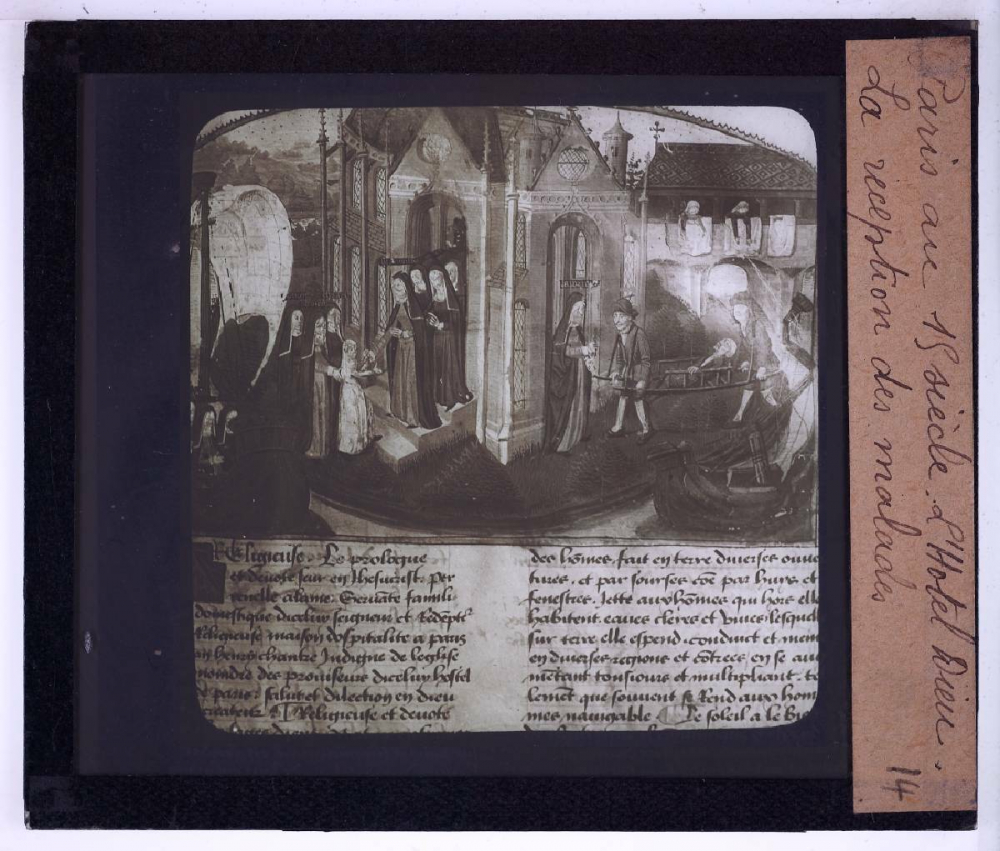 Paris au 15 siècle. L'Hotel Dieu.
La reception des malades
14
Religieuse. Le prologue
et devote seur en Jhesucrist. Per
renelle alame. Servāte famili
domestique dicelluy seigneur et Redēpt
Religieuse maison dospitalite a paris
henry chanbre Indigne de leglise
des proviseurs dicelluy hostel
paris salut et dilection en dieu
Religieuse et devote
des hōmes, fait en terre diverses ouve
tures, et par sourses cōe par huys et
fenestres, Jette aux hōmes qui hors elle
habitent, eaues cleres et vives lesquel
sur terre elle espend, conduict et mein
en diverses regions et cōtrees, en se au
mentant tousiours et multipliant, te
lement que souvent se Rend aux hom
mes navigable Le soleil a le